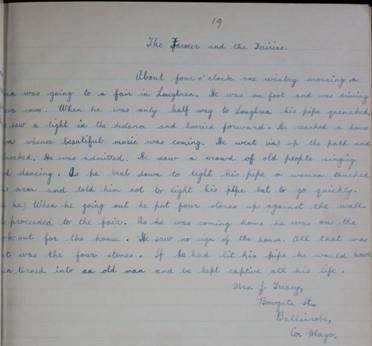 19
The Farmer and the Fairies.
About four o'clock one wintry morning a
was going to a fair in Loughrea. He was on foot and was driving
cow. When he was only half way to Loughrea his pipe quenched,
saw a light in the distance and hurried forward. He reached a house
whence beautiful music was coming. He went up the path and
He was admitted. He saw a crowd of old people singing
dancing. As he bent down to light his pipe a woman touched
arm and told him not to light his pipe but to go quickly.
he) When he going out he put four stones up against the wall
proceeded to the fair. As he was coming home he was on the
out for the house. He saw no sign of the house. All that was
was the four stones. If he had lit his pipe he would have
turned into an old man and be kept captive all his life.
Mrs J.
Bowgate St.,
Ballinrobe,
Co. Mayo.